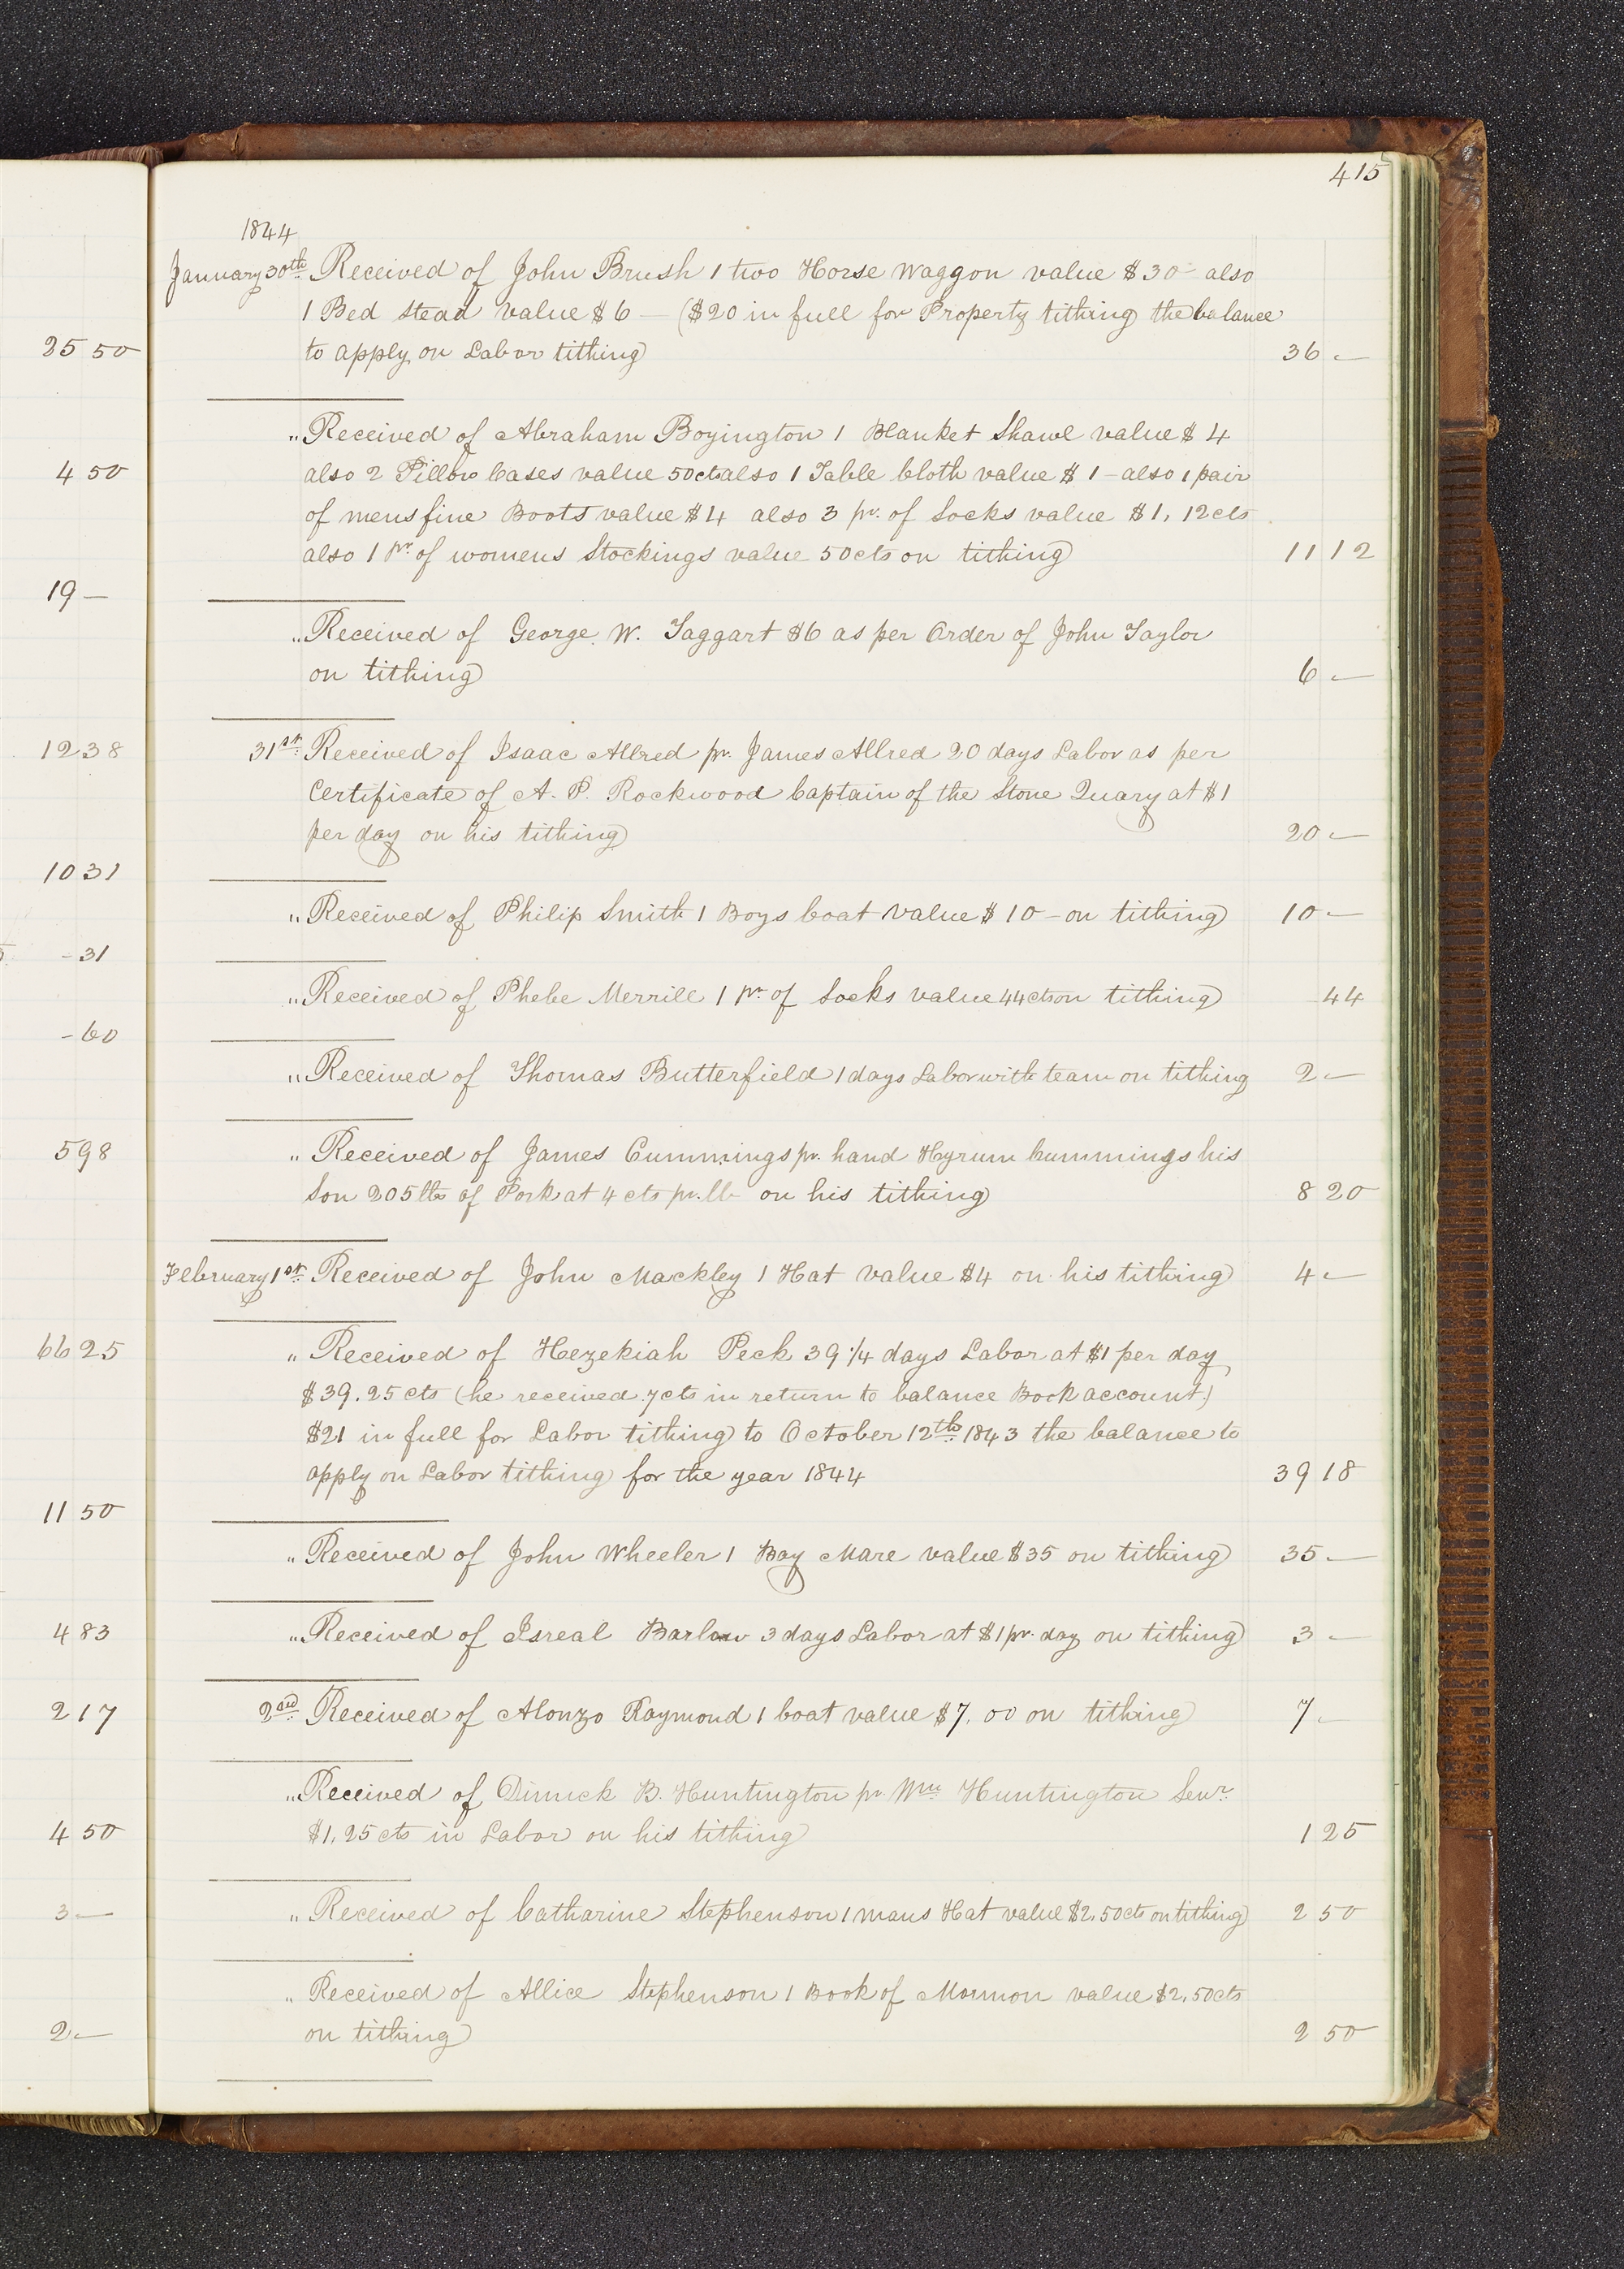 415
1844
January 30th Received of John Brush 1 two Horse Waggon value $30 - also
1 Bed stead value $6 — ($20 in full for Property tithing the balance
to apply on Labor tithing) 36 —
" Received of Abraham Boyington 1 Blanket Shawl value $4
also 2 Pillow Cases value 50cts also 1 Table Cloth value $1 - also 1 pair
of mens fine Boots value $4 also 3 pr. of Socks value $1,12cts
also 1 pr. of womens Stockings value 50cts on tithing 11 12
" Received of George W. Taggart $6 as per Order of John Taylor
on tithing 6 —
31st Received of Isaac Allred pr. James Allred 20 days Labor as per
Certificate of A. P. Rockwood Captain of the Stone Quary at $1
per day on his tithing 20 —
" Received of Philip Smith 1 Boys Coat value $10 - on tithing 10 —
" Received of Phebe Merrill 1 pr. of Socks value 44cts on tithing 44
" Received of Thomas Butterfield 1 days Labor with team on tithing 2 —
" Received of James Cummings pr. hand Hyrum Cummings his
Son 205 lbs of Pork at 4 cts pr. lb on his tithing 8 20
February 1st Received of John Mackley 1 Hat value $4 on his tithing 4 —
" Received of Hezekiah Peck 39 1/4 days Labor at $1 per day
$39.25 cts (he received 7cts in return to balance Book account.)
$21 in full for Labor tithing to October 12th 1843 the balance to
apply on Labor tithing for the year 1844 39 18
" Received of John Wheeler 1 Bay Mare value $35 on tithing 35 —
" Received of Isreal Barlow 3 days Labor at $1 pr. day on tithing 3 —
2nd Received of Alonzo Raymond 1 Coat value $7.00 on tithing 7 —
" Received of Dimick B. Huntington pr. Wm Huntington Senr.
$1,25 cts in Labor on his tithing 1 25
" Received of Catharine Stephenson 1 mans Hat value $2,50cts on tithing 2 50
" Received of Allice Stephenson 1 Book of Mormon value $2,50cts
on tithing 2 50
25 50
4 50
19 —
12 38
10 31
- 31
- 60
5 98
66 25
11 50
4 83
2 17
4 50
3 —
2 —